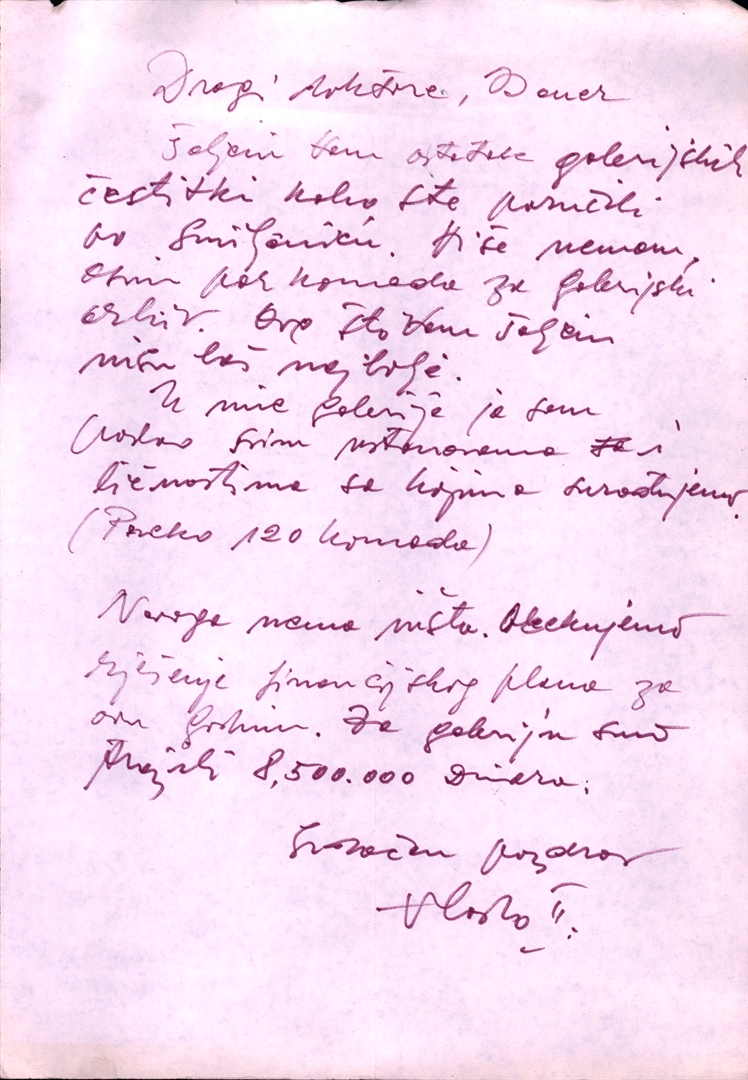 Dragi doktore, Bauer
Šaljem Vam ostatak galerijskih
čestitki kako ste poručili
po Smiljaniću. Više nemam,
osim par komada za galerijski
arhiv. Ovo što Vam šaljem
nisu baš najbolje.
U ime galerije ja sam
poslao svim ustanovama i
ličnostima sa kojima surađujemo.
(Preko 120 komada)
Novoga nema ništa. Očekujemo
rješenje financijskog plana za
ovu godinu. Za galeriju smo
tražili 8,500.000 Dinara.
Srdačan pozdrav
Vlasko